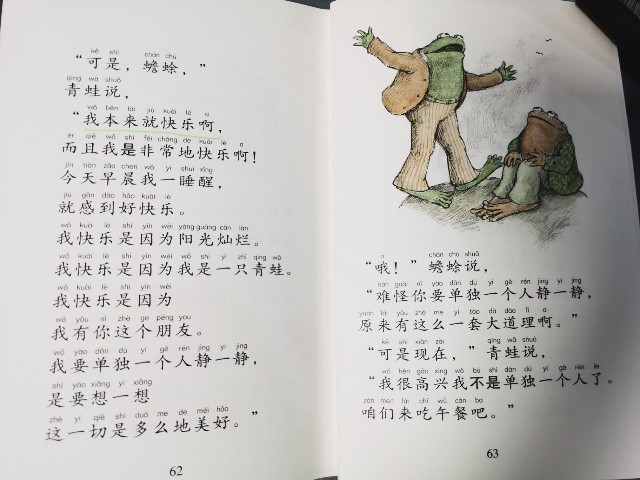 kě shì chán chú
“可是，蟾蜍，”
qīng wā shuō
青蛙说，
wǒ běn lái jiù kuài lè a
“我本来就快乐啊，
ér qiě wǒ shì fēi cháng de kuài lè a
而且我是非常地快乐啊！
jīn tiān zǎo chen wǒ yí shuì xǐng
今天早晨我一睡醒，
jiù gǎn dào hǎo kuài lè
就感到好快乐。
wǒ kuài lè shì yīn wèi yáng guāng càn làn
我快乐是因为阳光灿烂。
wǒ kuài lè shì yīn wèi wǒ shì yì zhī qīng wā
我快乐是因为我是一只青蛙。
wǒ kuài lè shì yīn wèi
我快乐是因为
wǒ yǒu nǐ zhè ge péng you
我有你这个朋友。
wǒ yào dān dú yí gè rén jìng yi jìng
我要单独一个人静一静，
shì yào xiǎng yi xiǎng
是要想一想
zhè yí qiè shì duō me de měi hǎo
这一切是多么地美好。”
62
ò chán chú shuō
“哦！”蟾蜍说，
nán guài nǐ yào dān dú yí gè rén jìng yi jìng
“难怪你要单独一个人静一静，
yuán lái yǒu zhè me yí tào dà dào lǐ a
原来有这么一套大道理啊。”
kě shì xiàn zài qīng wā shuō
“可是现在，”青蛙说，
wǒ hěn gāo xìng wǒ bú shì dān dú yí gè rén le
“我很高兴我不是单独一个人了。
zán men lái chī wǔ cān ba
咱们来吃午餐吧。”
63